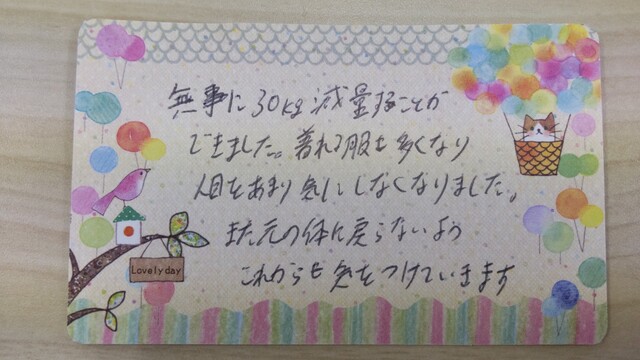 無事に30kg減量することが
できました。着れる服も多くなり
人目をあまり気にしなくなりました。
また元の体に戻らないよう
これからも気をつけていきます
Lovely day